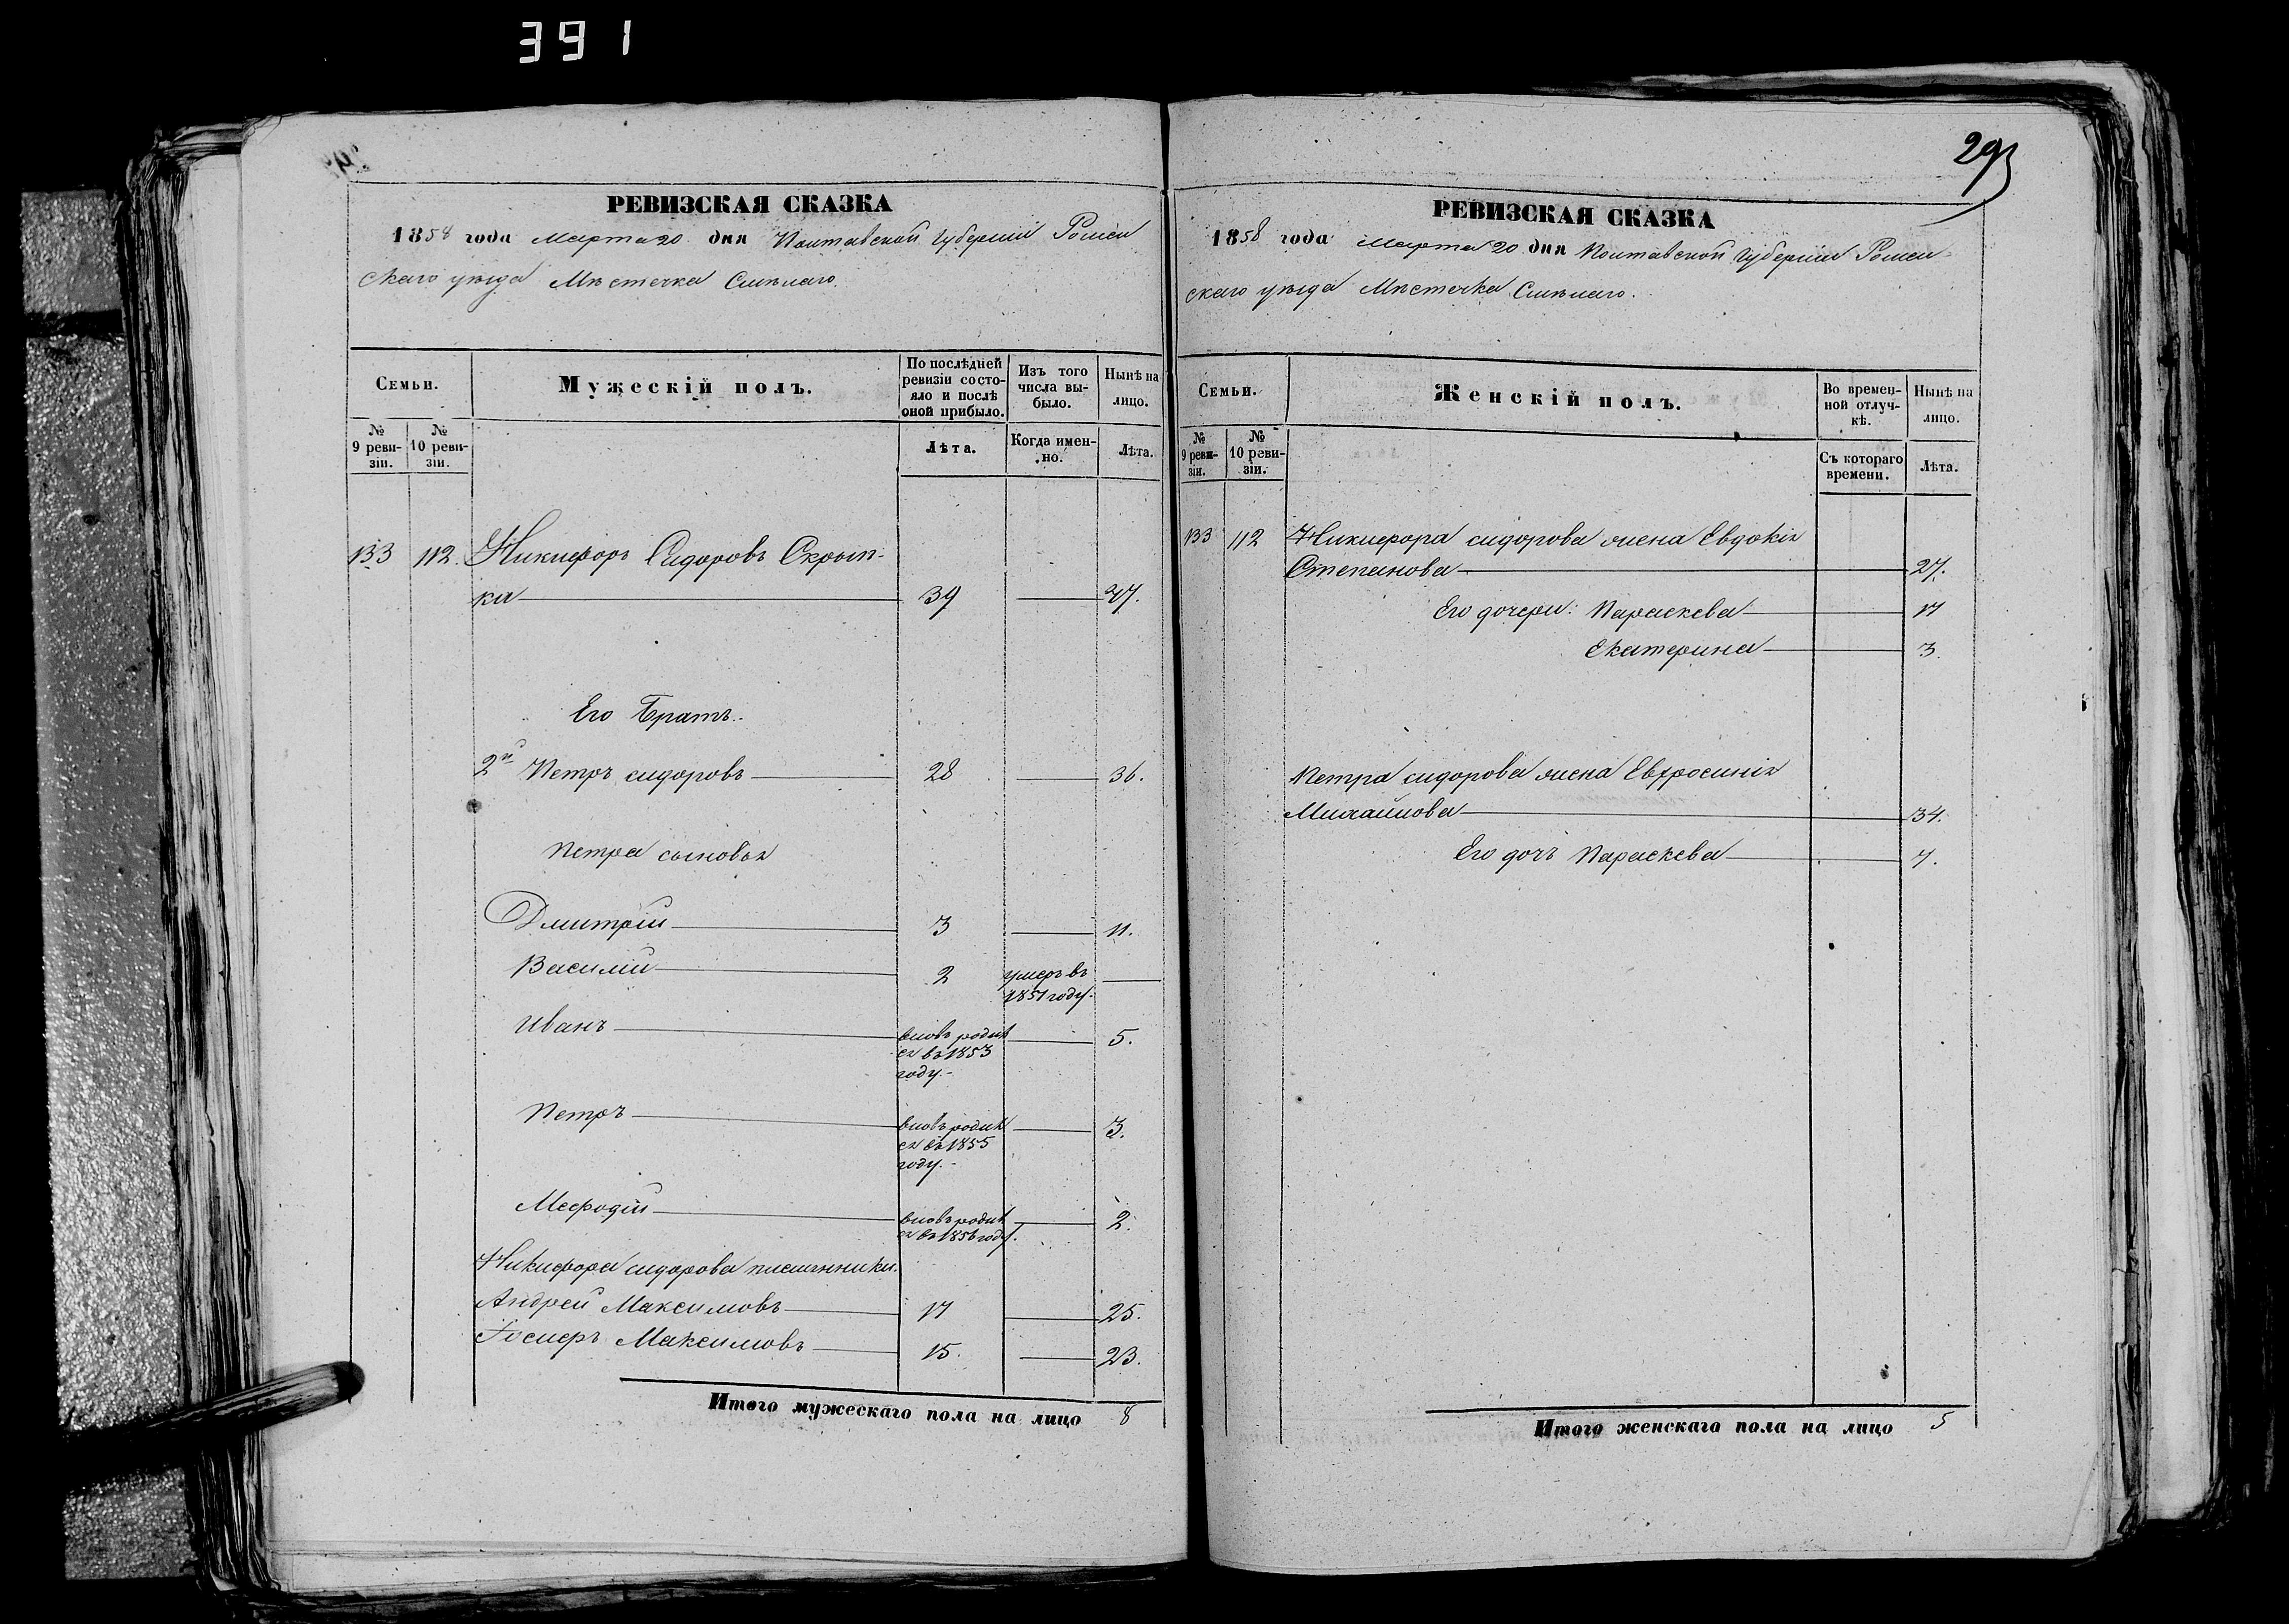 391
293
РЕВИЗСКАЯ СКАЗКА
1858 года Марта 20 дня Полтавской Губерніи Ромен
скаго уѣзда Мѣстечка Смѣлаго.
Семьи.
Мужескій полъ.
По послѣдней
ревизіи состо-
яло и послѣ
оной прибыло.
Изъ того
числа вы-
было.
Нынѣ на
лицо.
№
9 реви-
зіи.
№
10 реви-
зіи.
Лѣта.
Когда имен-
но.
Лѣта.
133 112. Никифоръ Сидоровъ Скрып-
ка 39 47.
Его Братъ.
2й Петръ сидоровъ 28 36.
Петра сыновья
Дмитрій 3 11.
Василій 2 умеръ въ
1851 году.
Иванъ вновь родил 5.
ся въ 1853
году.-
Петръ вновь родил 3.
ся въ 1855
году.-
Мефодій вновь родил 2.
ся въ 1856 году.
Никифора сидорова племянники.
Андрей Максимовъ 17 25.
Іосифъ Максимовъ 15. 23.
Итого мужескаго пола на лицо 8
РЕВИЗСКАЯ СКАЗКА
1858 года Марта 20 дня Полтавской Губерніи Ромен
скаго уѣзда Мѣстечка Смѣлаго.
Семьи.
Женскій полъ.
Во времен-
ной отлуч-
кѣ.
Нынѣ на
лицо.
№
9 реви-
зіи.
№
10 реви-
зіи.
Съ котораго
времени.
Лѣта.
133 112 Никифора сидорова жена Евдокія
Степанова 27.
Его дочери: Параскева 17
Екатерина 3.
Петра сидорова жена Евфросинія
Михайлова 34.
Его дочь Параскева 7.
Итого женскаго пола на лицо 5